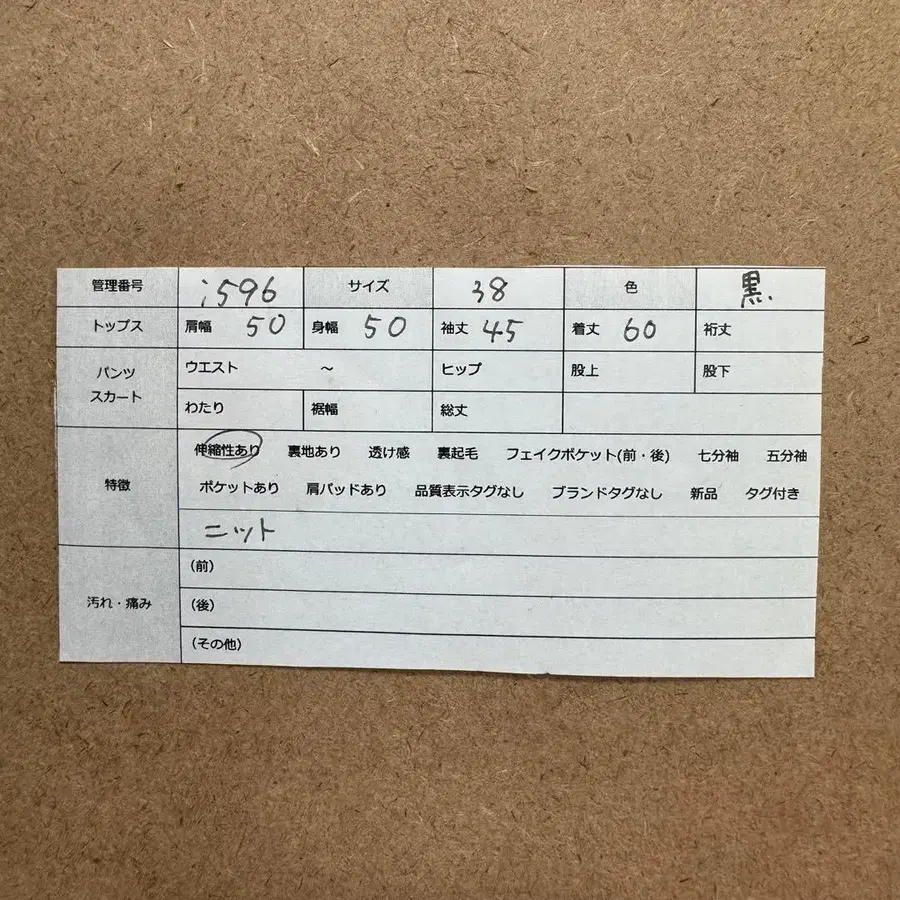 管理番号 i596 サイズ 38 色 黒
トップス 肩幅 50 身幅 50 袖丈 45 着丈 60 裄丈
パンツ スカート ウエスト ～ ヒップ 股上 股下
わたり 裾幅 総丈
特徴 伸縮性あり 裏地あり 透け感 裏起毛 フェイクポケット(前・後) 七分袖 五分袖
ポケットあり 肩パッドあり 品質表示タグなし ブランドタグなし 新品 タグ付き
ニット
汚れ・痛み (前)
(後)
(その他)